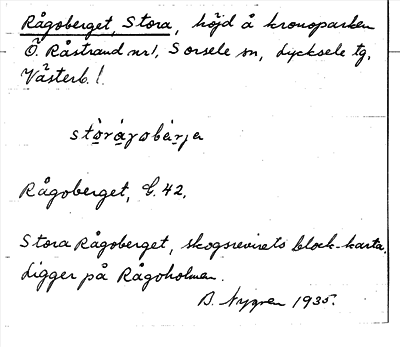 Rågoberget, Stora, höjd å kronoparken
Ö. Råstrand nr 1, Sorsele sn, Lycksele tg,
Västerb. l.
Rågoberget, G. 42.
Stora Rågoberget, skogsrevirets block-karta.
Ligger på Rågoholmen.
B. Nygren 1935.